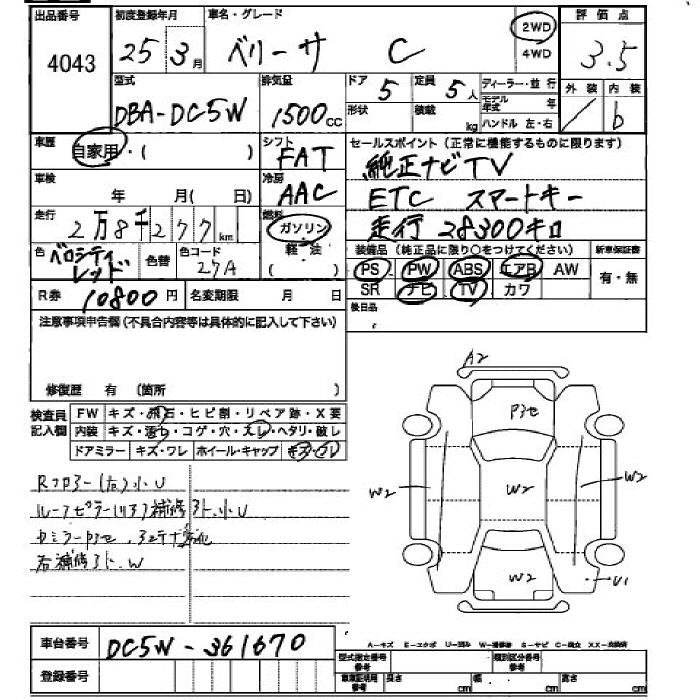 出品番号 初度登録年月 車名・グレード 2WD 評価点
4043 25 3月 ベリーサ C 4WD 3.5
型式 排気量 ドア 5 定員 5人 ディーラー・並行 外装 内装
DBA-DC5W 1500cc 形状 積載 kg モデル年式 年 / b
ハンドル 左・右
車歴 自家用・( ) シフト FAT セールスポイント(正常に機能するものに限ります)
純正ナビTV
車検 年 月(日) 冷房 AAC ETC スマートキー
走行 2万8千277km 燃料 ガソリン 走行 28300キロ
軽・( )
色 ベロシティレッド 色替 色コード 27A 装備品(純正品に限り○をつけてください) 新車保証書
PS PW ABS エアB AW 有・無
R券 10800円 名変期限 月 日 SR ナビ TV カワ
注意事項申告欄(不具合内容等は具体的に記入して下さい) 後日品
修復歴 有 (箇所 )
A2
検査員記入欄 FW キズ・飛石・ヒビ割・リペア跡・X要
内装 キズ・汚れ・コゲ・穴・スレ・ヘタリ・破し
ドアミラー キズ・ワレ ホイール・キャップ キズ・ワレ
W2 W2 W2
W2 U1
Rフロアー(右)小U
小U
右補修アト、W
車台番号 DC5W-361670
A-キズ E-エクボ U-凹み W-補修跡 S-サビ C-腐食 XX-交換済
登録番号 型式指定番号 参考 類別区分番号 参考
車車証明用 参考 長さ cm 幅 cm 高さ cm